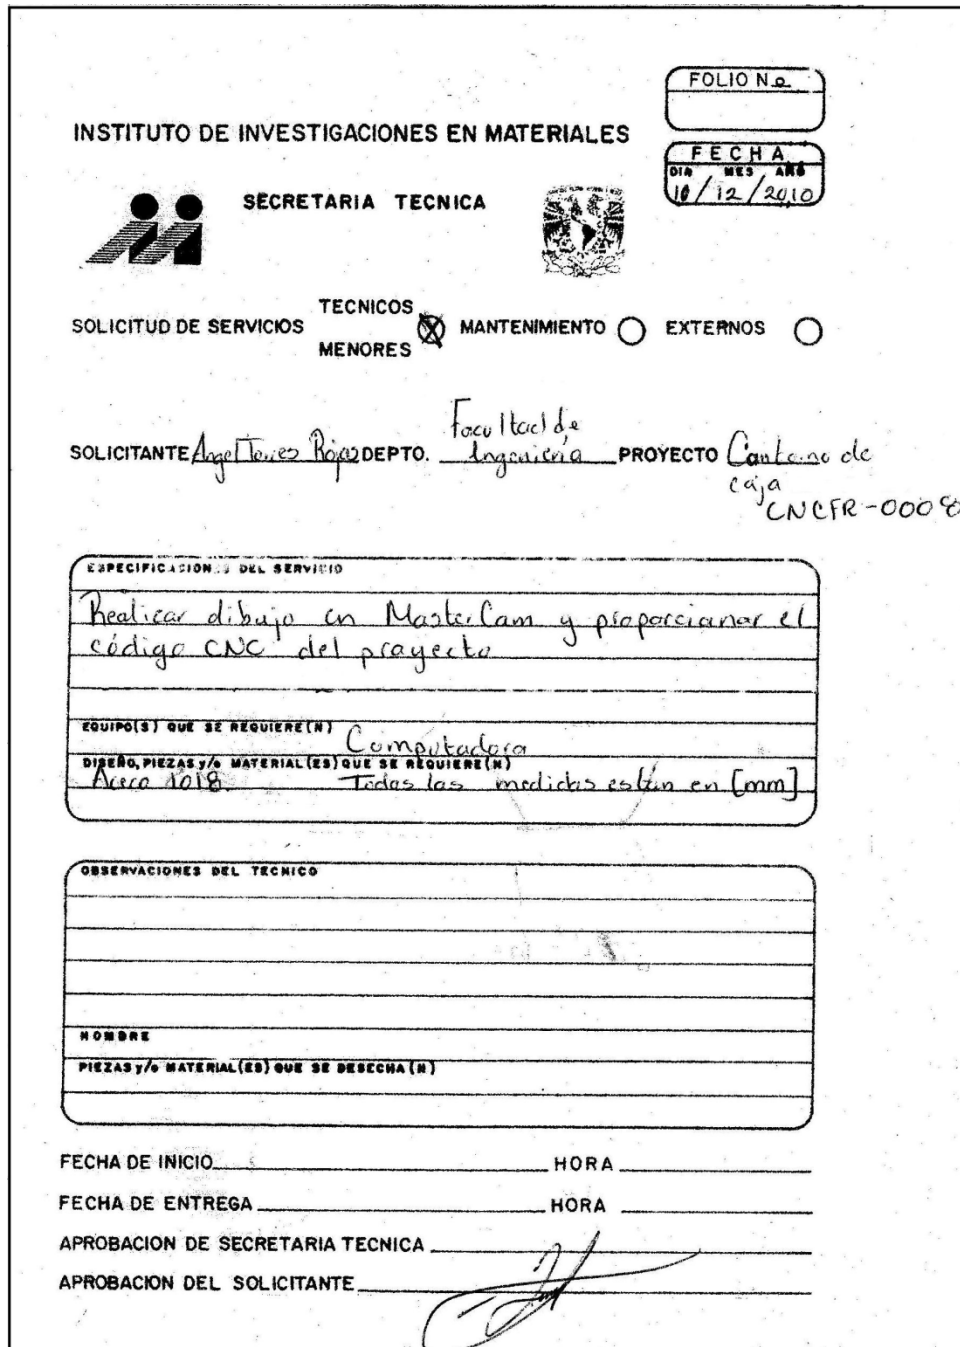 FOLIO No
INSTITUTO DE INVESTIGACIONES EN MATERIALES
FECHA
DIA MES AÑO
10/12/2010
SECRETARIA TECNICA
SOLICITUD DE SERVICIOS TECNICOS MENORES MANTENIMIENTO EXTERNOS
SOLICITANTE Angel Torres Rojas DEPTO. Facultad de Ingeniería PROYECTO Contorno de caja
CNCFR-0008
ESPECIFICACIONES DEL SERVICIO
Realizar dibujo en MasterCam y proporcionar el
código CNC del proyecto
EQUIPO(S) QUE SE REQUIERE(N) Computadora
DISEÑO, PIEZAS y/o MATERIAL(ES) QUE SE REQUIERE(N)
Acero 1018. Todas las medidas están en [mm]
OBSERVACIONES DEL TECNICO
NOMBRE
PIEZAS y/o MATERIAL(ES) QUE SE DESECHA(N)
FECHA DE INICIO HORA
FECHA DE ENTREGA HORA
APROBACION DE SECRETARIA TECNICA
APROBACION DEL SOLICITANTE